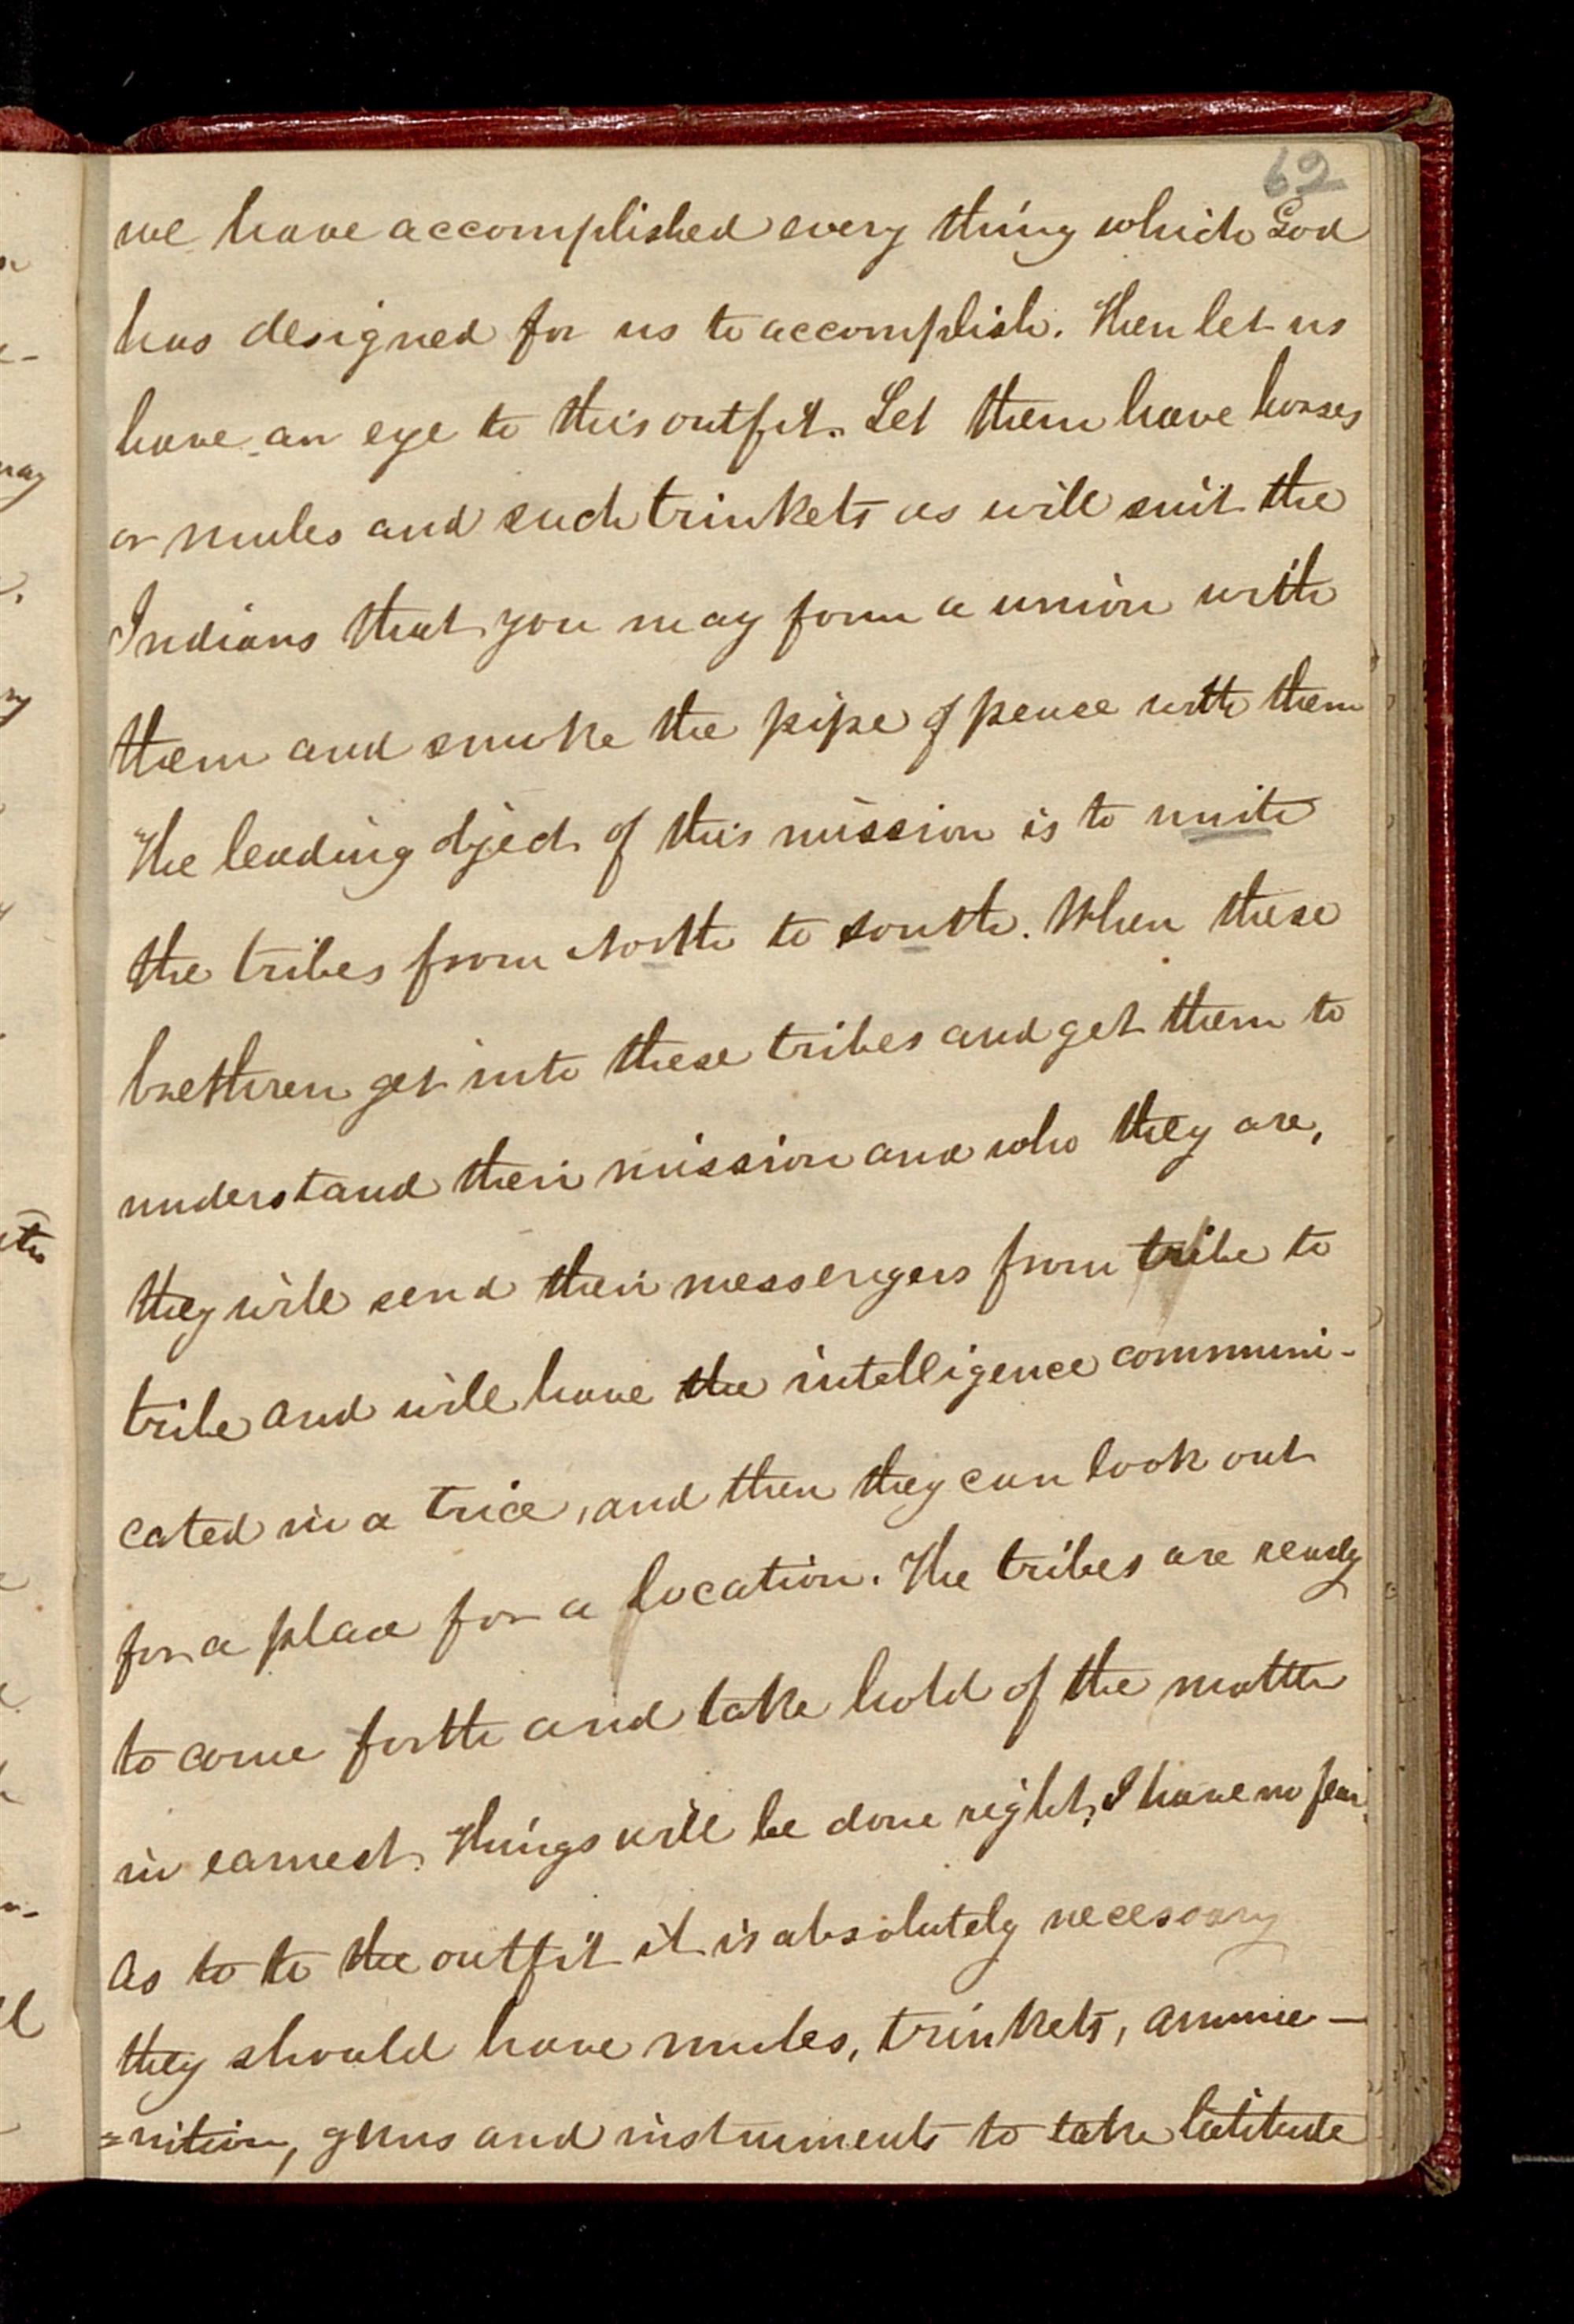 62
we have accomplished every thing which God
has designed for us to accomplish. Then let us
have an eye to this outfit. Let them have horses
or mules and such trinkets as will suit the
Indians that you may form a union with
them and smoke the pipe of peace with them
The leading object of this mission is to unite
the tribes from North to south. When these
brethren get into these tribes and get them to
understand their mission and who they are,
they will send their messengers from tribe to
tribe and will have the intelligence communi-
cated in a trice, and then they can look out
for a place for a location. The tribes are ready
to come forth and take hold of the matter
in earnest. Things will be done right, I have no fear.
As to to the outfit it is absolutely necessary
they should have mules, trinkets, ammu-
=nition, guns and instruments to take latitude